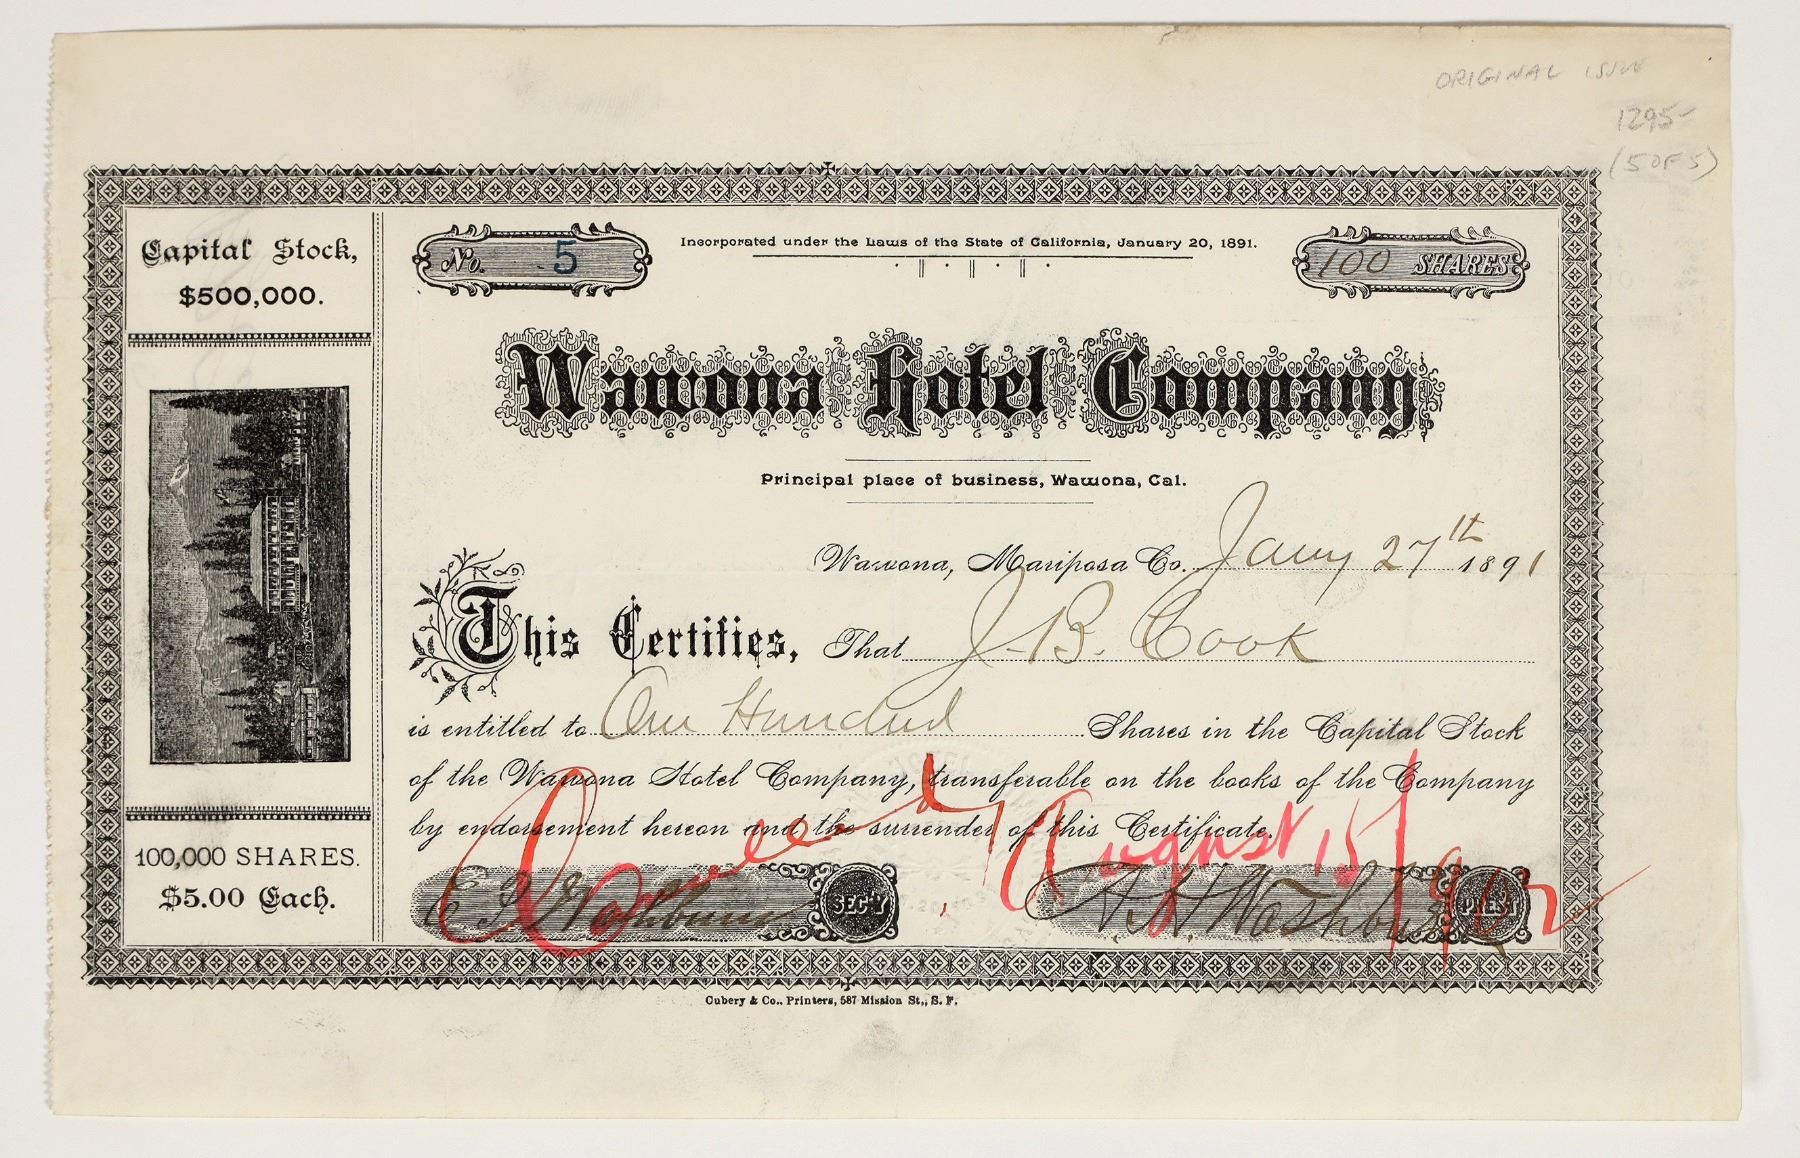 ORIGINAL ISSUE
1295-
(5 OF 5)
Capital Stock,
$500,000.
100,000 SHARES.
$5.00 Each.
No. 5
Incorporated under the Laws of the State of California, January 20, 1891.
100 SHARES
Wawona Hotel Company
Principal place of business, Wawona, Cal.
Wawona, Mariposa Co. Jany 27th 1891
This Certifies, That J. B. Cook
is entitled to One Hundred Shares in the Capital Stock
of the Wawona Hotel Company, transferable on the books of the Company
by endorsement hereon and the surrender of this Certificate.
Cancelled August 15/1902
E. P. Washburn SEC'Y
A. H. Washburn PREST
Cubery & Co., Printers, 587 Mission St., S. F.